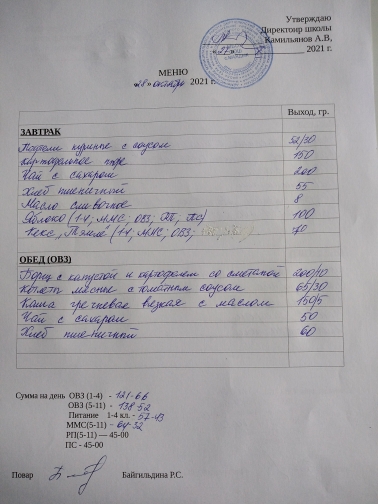 Утверждаю
Директоир школы
Камильянов А.В,
2021 г.
МЕНЮ
«28» октября 2021 г.
Выход, гр.
ЗАВТРАК
куриные с соусом 52/30
картофельное пюре 150
Чай с сахаром 200
Хлеб пшеничный 55
Масло сливочное 8
Яблоко (1-4, ММС, ОВЗ, 100
Кекс, (1-4, ММС, ОВЗ, 70
ОБЕД (ОВЗ)
Борщ с капустой и картофелем со сметаной 200/10
Котлеты мясные с томатным соусом 65/30
Каша гречневая вязкая с маслом 150/5
Чай с сахаром 50
Хлеб пшеничный 60
Сумма на день ОВЗ (1-4) - 121-66
ОВЗ (5-11) - 138-52
Питание 1-4 кл. - 57-43
ММС(5-11) - 64-32
РП(5-11) — 45-00
ПС - 45-00
Повар Байгильдина Р.С.